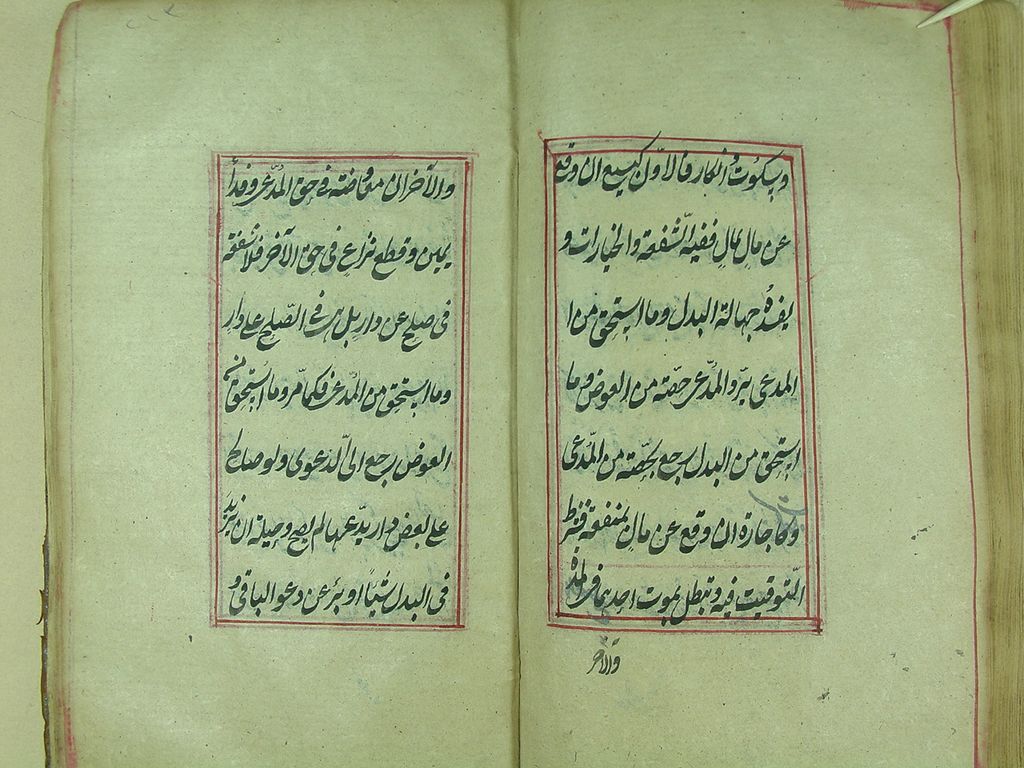 وبسكوت وانكار فالاول كبيع ان وقع
عن مال بمال ففيه الشفعة والخيارات و
يفسده جهالة البدل وما استحق من ا
المدعى يرد المدعى حصته من العوض وما
استحق من البدل رجع بحصته من المدعى
وكاجارة ان وقع عن مال بمنفعة فشرط
التوقيت فيه وتبطل بموت احدهما في المدة
والآخر
والآخران معاوضة في حق المدعى وفداء
يمين وقطع نزاع في حق الآخر فلا شفعة
في صلح عن دار بل هي في الصلح على دار
وما استحق من المدعى فكما مر وما استحق من
العوض رجع الى الدعوى ولو صالح
على بعض دار يدعيها لم يصح وحيلته ان يزيد
في البدل شيئا او يبرئ عن دعوى الباقي و